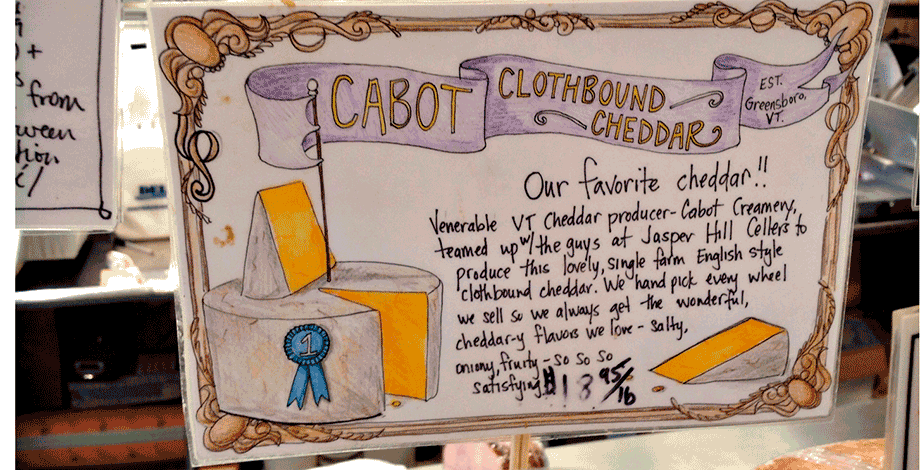 from
CABOT
CLOTHBOUND
CHEDDAR
EST.
Greensboro,
VT.
Our favorite cheddar!!
Venerable VT Cheddar producer- Cabot Creamery,
teamed up w/ the guys at Jasper Hill Cellers to
produce this lovely, single farm English style
clothbound cheddar. We hand pick every wheel
we sell so we always get the wonderful,
cheddar-y flavors we love - salty,
oniony, fruity - so so so
satisfying. $18 95/lb
1